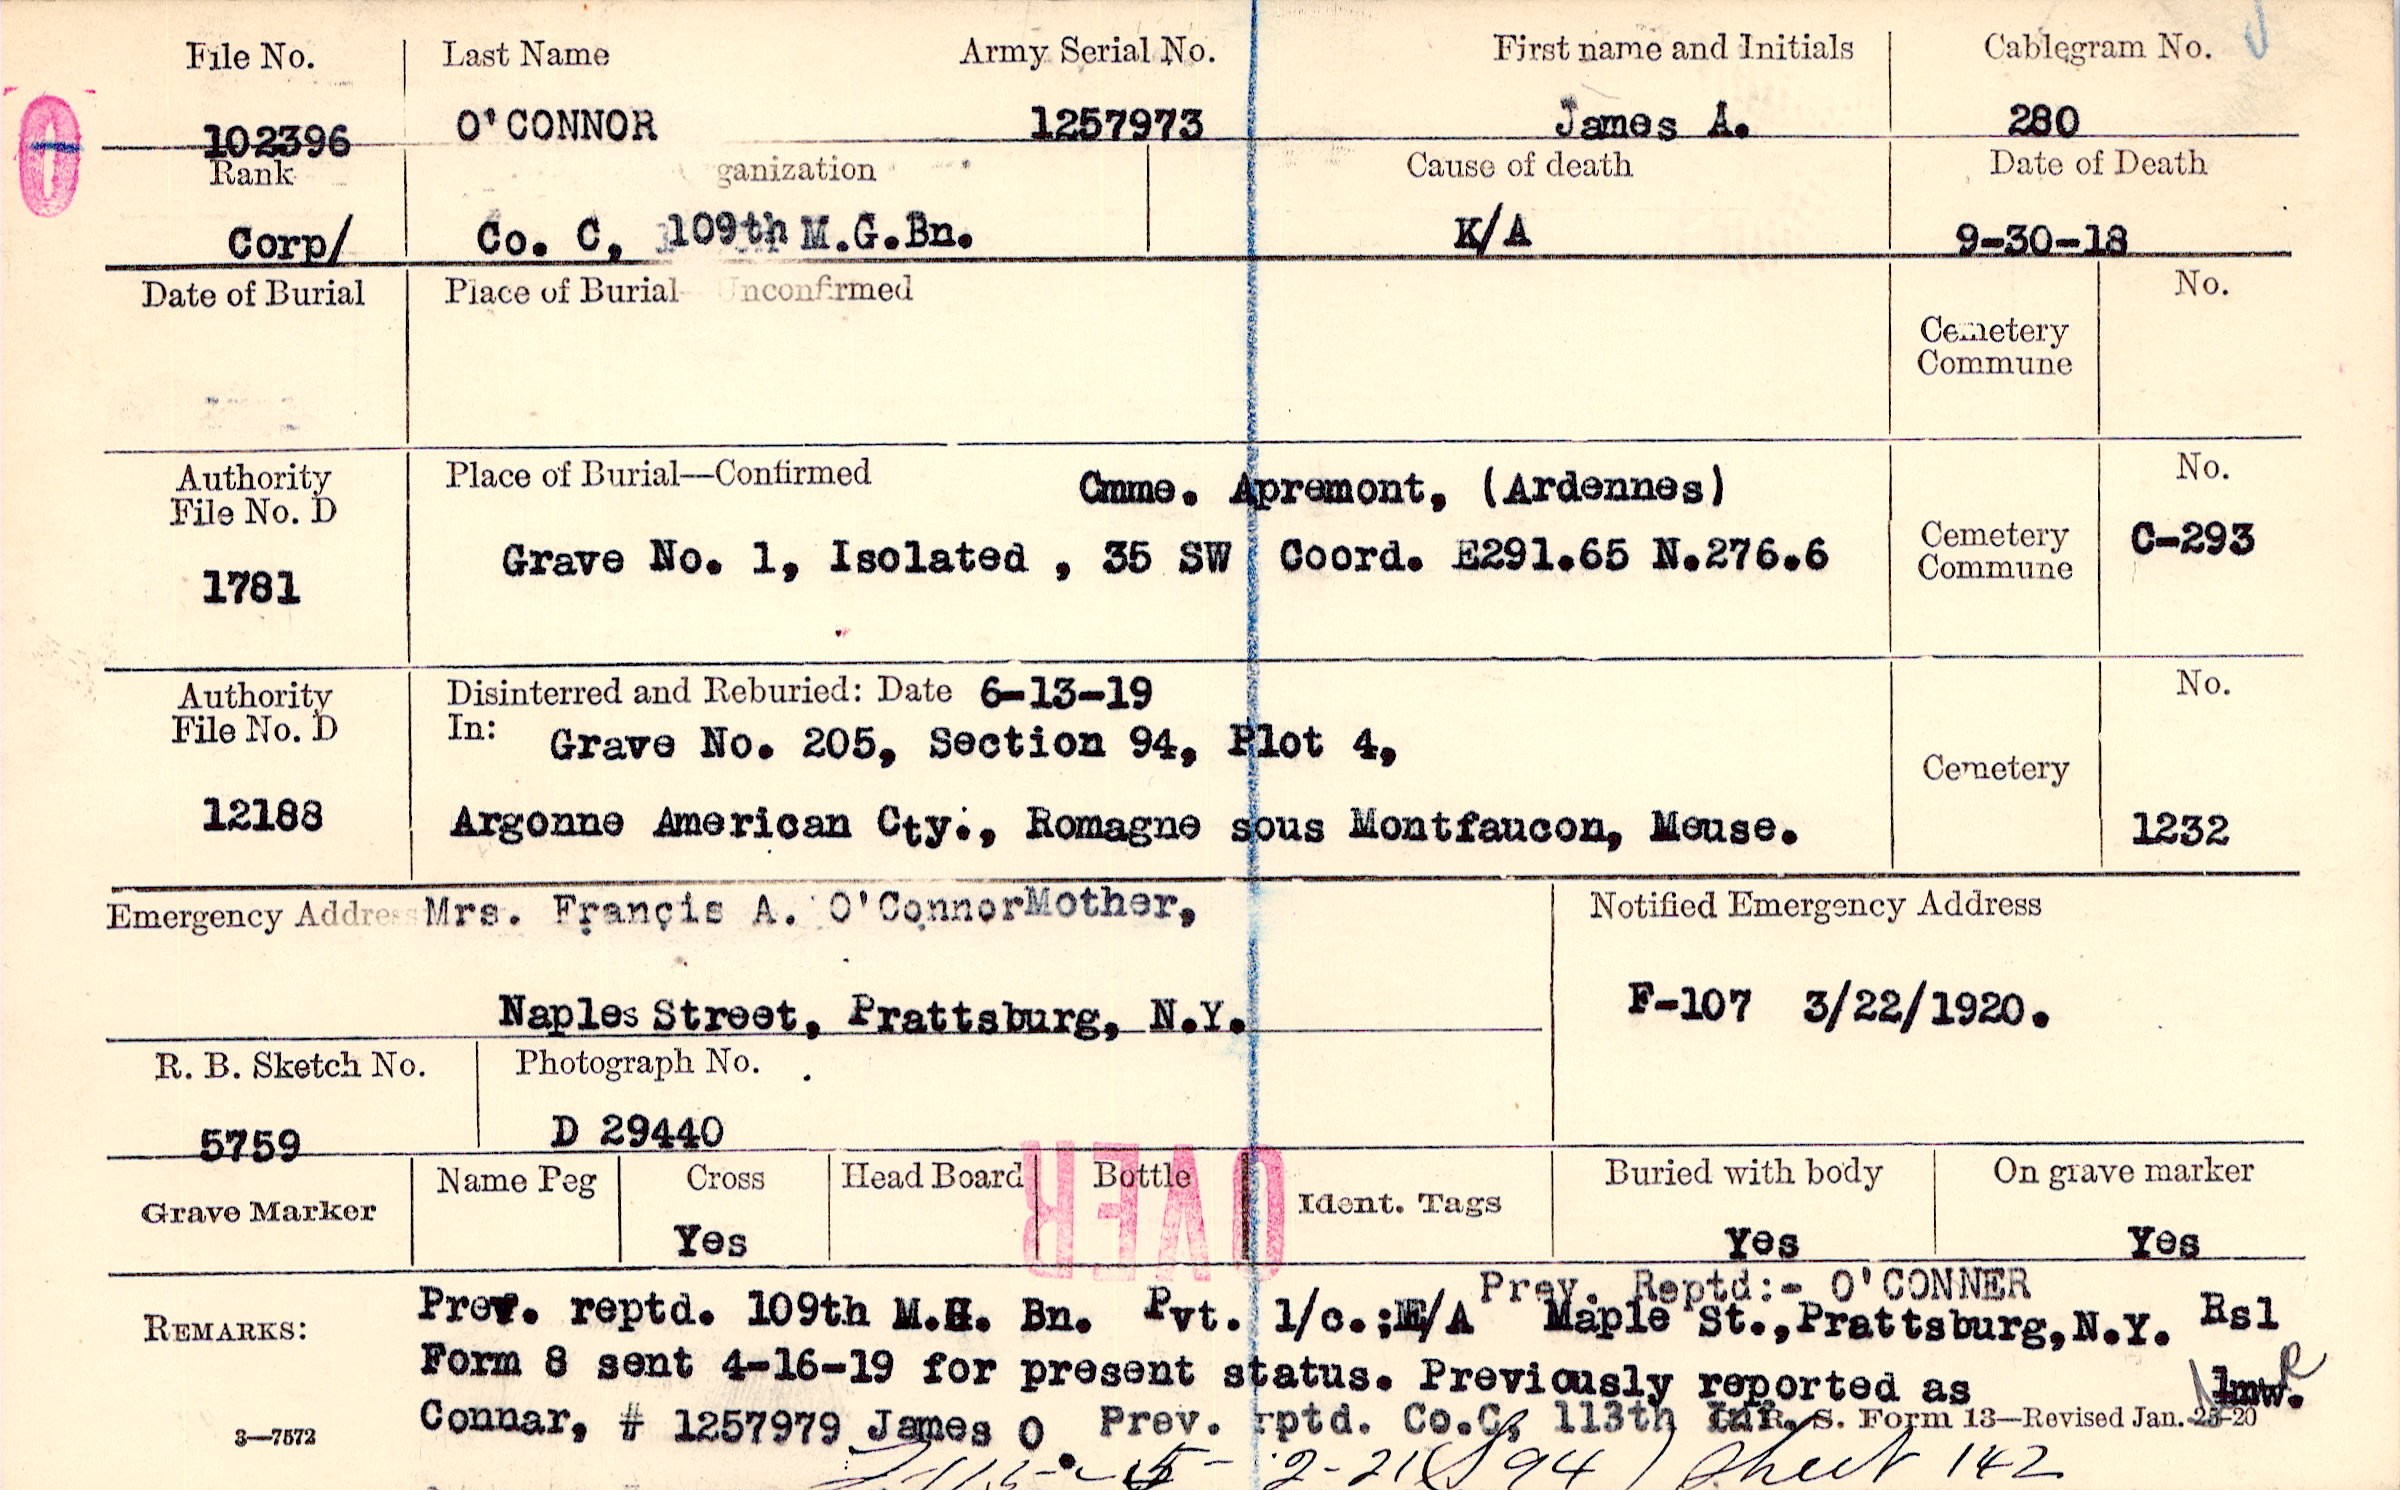 File No. Last Name Army Serial No. First name and Initials Cablegram No.
102396 O'CONNOR 1257973 James A. 280
Rank ganization Cause of death Date of Death
Corp/ Co. C, 109th M.G.Bn. K/A 9-30-18
Date of Burial Place of Burial Unconfirmed No.
Cemetery
Commune
Authority Place of Burial—Confirmed Cmme. Apremont, (Ardennes) No.
File No. D
1781 Grave No. 1, Isolated , 35 SW Coord. E291.65 N.276.6 Cemetery C-293
Commune
Authority Disinterred and Reburied: Date 6-13-19 No.
File No. D In: Grave No. 205, Section 94, Plot 4,
Cemetery
12188 Argonne American Cty., Romagne sous Montfaucon, Meuse. 1232
Emergency Addres Mrs. Francis A. O'Connor Mother, Notified Emergency Address
Naples Street, Prattsburg, N.Y. F-107 3/22/1920.
R. B. Sketch No. Photograph No.
5759 D 29440
OVER
Grave Marker Name Peg Cross Head Board Bottle Ident. Tags Buried with body On grave marker
Yes Yes Yes
Prev. Reptd:- O'CONNER
REMARKS: Prev. reptd. 109th M.G. Bn. Pvt. 1/c.; /A Maple St.,Prattsburg,N.Y. Rsl
Form 8 sent 4-16-19 for present status. Previously reported as lmw.
Connar, # 1257979 James O. Prev. rptd. Co.C, 113th Inf. R. S. Form 13—Revised Jan. 25-20
3—7572
2-21 (S 94) Sheet 142